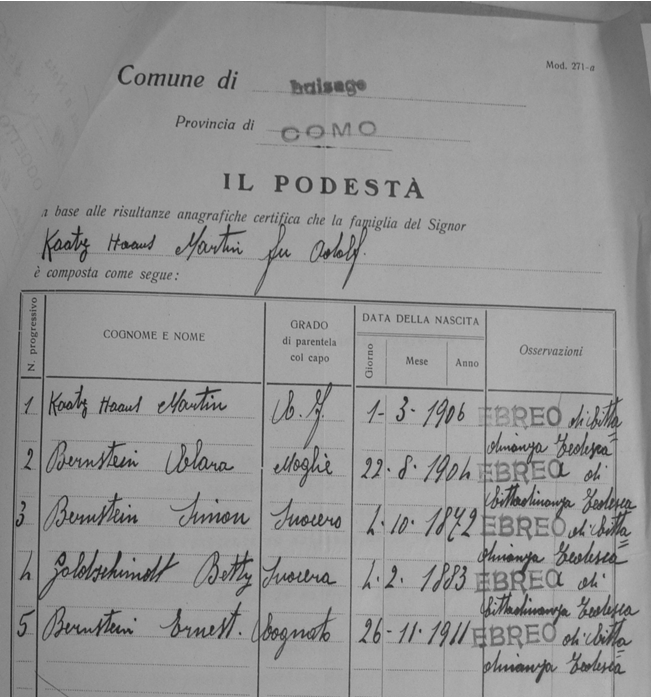 Mod. 271-a
Comune di Luisago
Provincia di COMO
IL PODESTÀ
a base alle risultanze anagrafiche certifica che la famiglia del Signor
Kaatz Haans Martin fu Adolf.
è composta come segue:
N. progressivo
COGNOME E NOME
GRADO
di parentela
col capo
DATA DELLA NASCITA
Giorno
Mese
Anno
Osservazioni
1 Kaatz Haans Martin C. f. 1 - 3 - 1906 EBREO di citta=
dinanza Tedesca
2 Bernstein Clara Moglie 22 - 8 - 1904 EBREA di
cittadinanza Tedesca
3 Bernstein Simon Suocero 4 - 10 - 1872 EBREO di citta=
dinanza Tedesca
4 Goldschimdt Betty Suocera 4 - 2 - 1883 EBREA di
cittadinanza Tedesca
5 Bernstein Ernest. Cognato 26 - 11 - 1911 EBREO di citta=
dinanza Tedesca